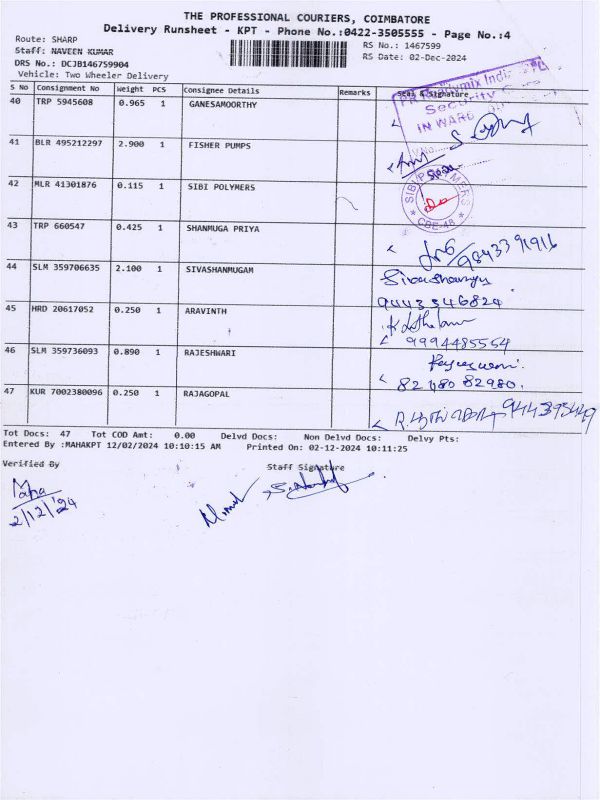 THE PROFESSIONAL COURIERS, COIMBATORE
Delivery Runsheet - KPT - Phone No.:0422-3505555 - Page No.:4
Route: SHARP
RS No.: 1467599
Staff: NAVEEN KUMAR
RS Date: 02-Dec-2024
DRS No.: DCJB146759904
Vehicle: Two Wheeler Delivery
S No Consignment No Weight PCS Consignee Details Remarks Seal & Signature
40 TRP 5945608 0.965 1 GANESAMOORTHY
Security
IN WARD
41 BLR 495212297 2.900 1 FISHER PUMPS
42 MLR 41301876 0.115 1 SIBI POLYMERS
SIBI POLYMERS
* CBE-48 *
43 TRP 660547 0.425 1 SHANMUGA PRIYA
9843391916
44 SLM 359706635 2.100 1 SIVASHANMUGAM
9443546824
45 HRD 20617052 0.250 1 ARAVINTH
9994485554
46 SLM 359736093 0.890 1 RAJESHWARI
82480 82980.
47 KUR 7002380096 0.250 1 RAJAGOPAL
Tot Docs: 47 Tot COD Amt: 0.00 Delvd Docs: Non Delvd Docs: Delvy Pts:
Entered By :MAHAKPT 12/02/2024 10:10:15 AM Printed On: 02-12-2024 10:11:25
Verified By
Staff Signature
Maha
2/12/'24